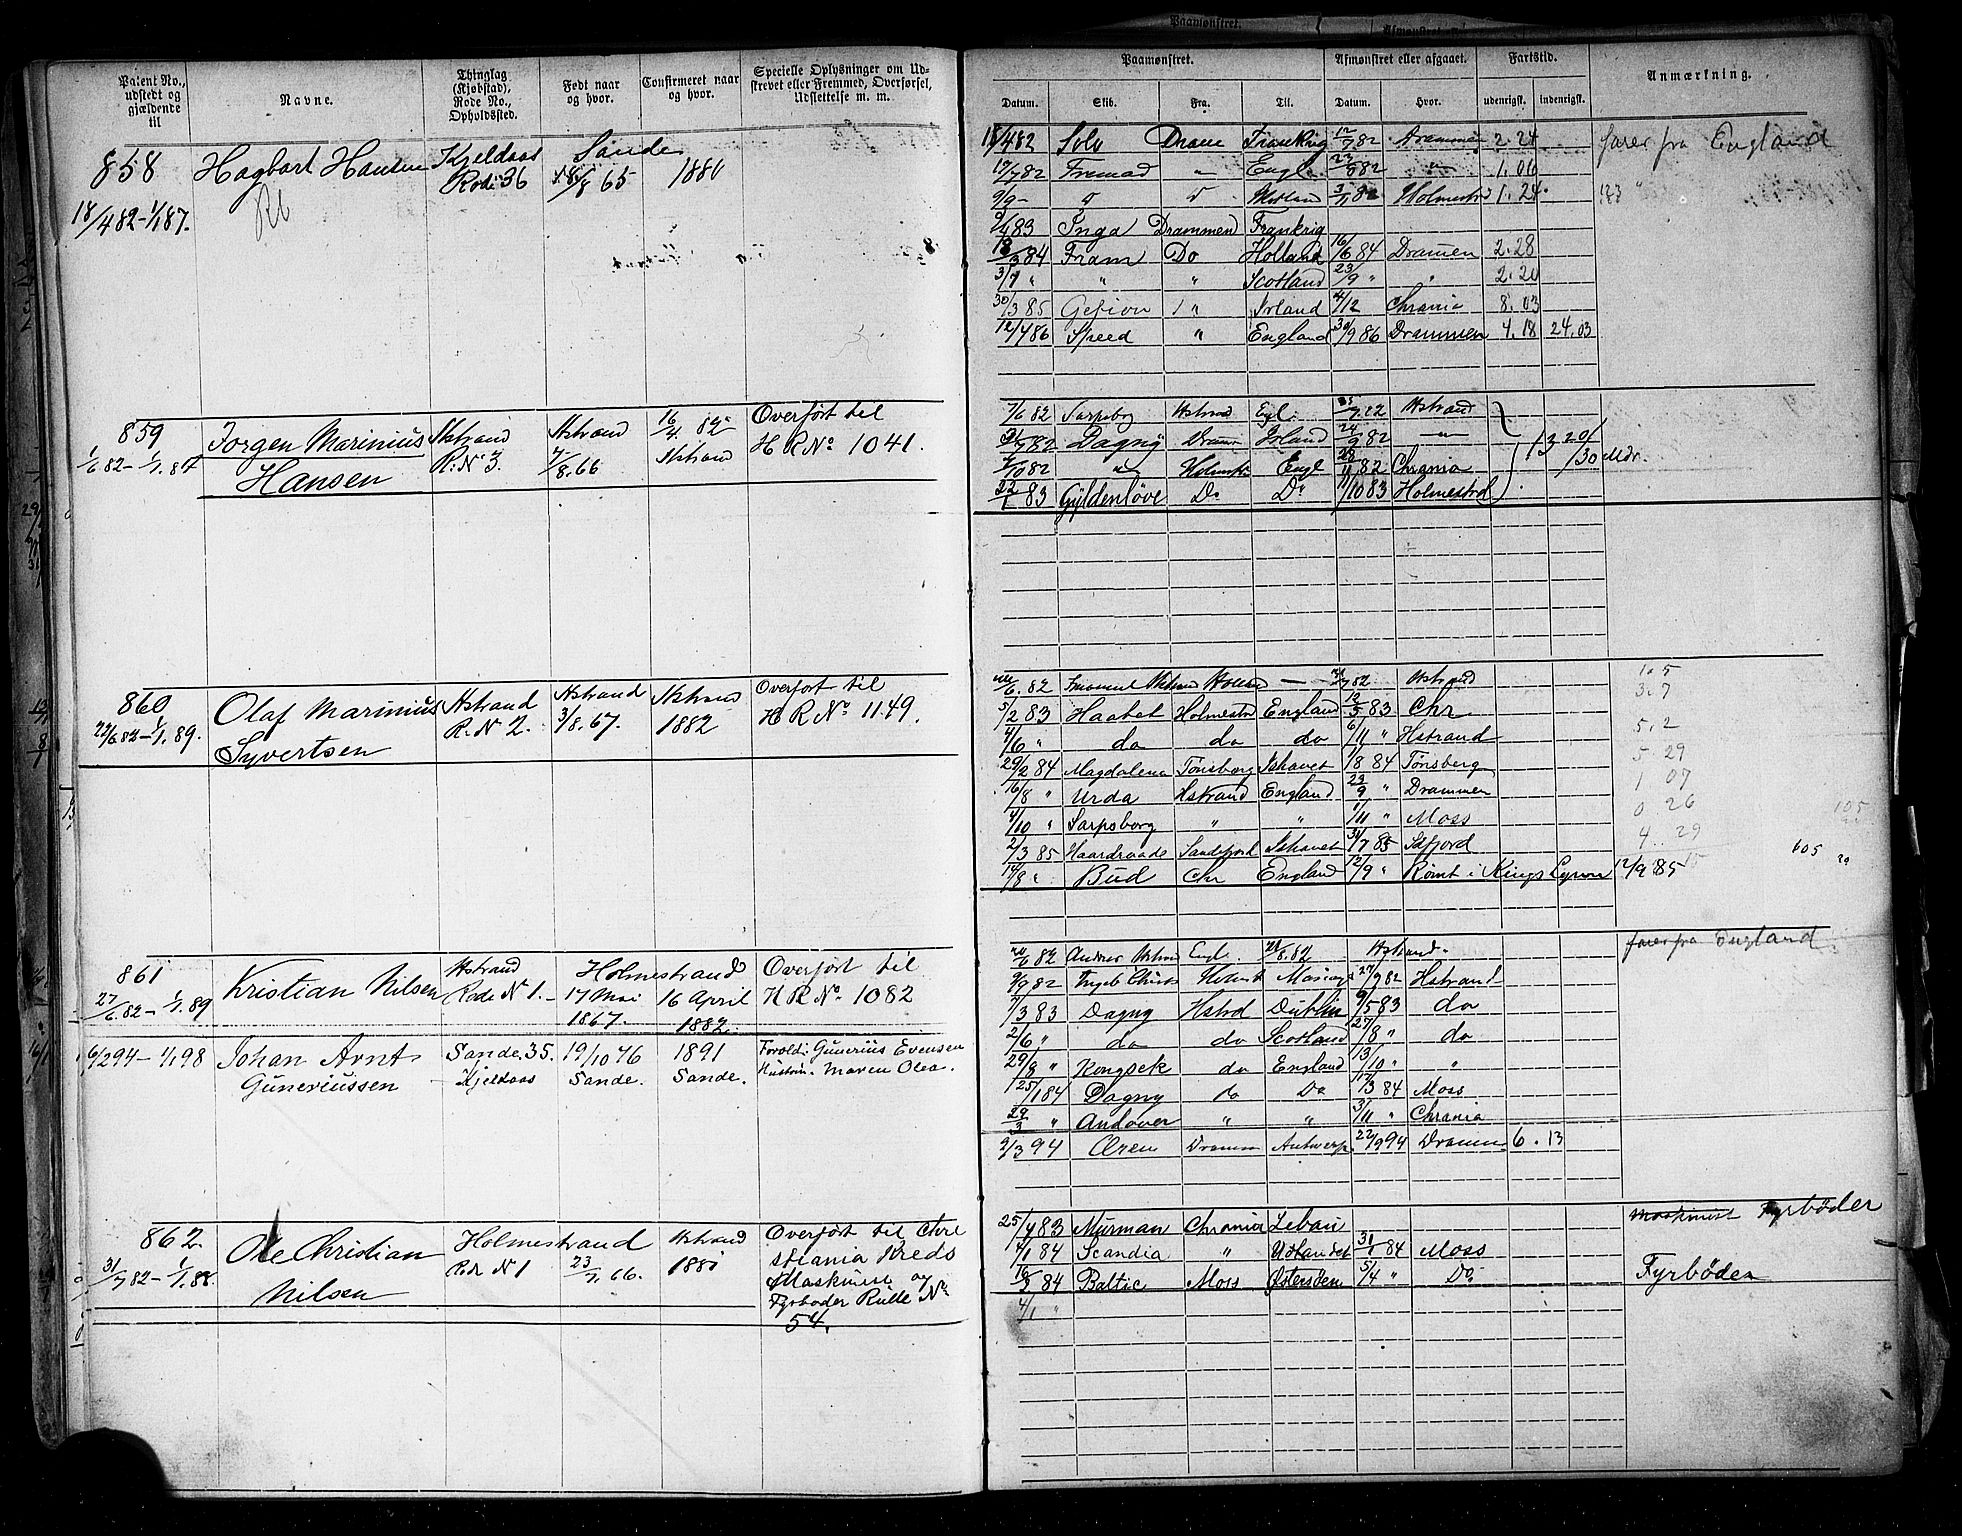 Patent No., udstedt og gjældende til
Navne.
Thinglag (Kjøbstad), Rode No., Opholdssted.
Født naar og hvor.
Confirmeret naar og hvor.
Specielle Oplysninger om Udskrevet eller Fremmed, Overførsel, Udslettelse m. m.
858
18/4 82 – 1/1 87.
Hagbart Hansen
Kjeldaas
Rode 36
Sande
8 65
1880
859
1/6 82 – 1/1 87
Jørgen Marinius
Hansen
Hstrand
R. No 3.
Hstrand
7/8.66
16/4 82
Hstrand
Overført til
H R No 1041.
860
22/6 82 – 1/1.89.
Olaf Marinius
Syvertsen
Hstrand
R. No 2.
Hstrand
3/8.67.
Hstrand
1882
Overført til
H R No. 1149.
861
27/6.82 – 1/1.89
Kristian Nilsen
Hstrand
Rode No 1.
Holmestrand
17 Mai
1867.
16 April
1882.
Overført til
H R No. 1082
6/2 94 – 1/1 98
Johan Arnt
Guneriussen
Sande. 35.
Kjeldaas
19/10 76
Sande.
1891
Sande.
Foræld: Gunerius Evensen
Hustru. Maren Olea.
862.
31/7 82 – 1/1.88.
Ole Christian
Nilsen
Holmestrand
Rode No 1
23/7.66.
Hstrand
1881
Overført til Chri
stiania Kreds
Maskinist og
Fyrbøder Rulle No
54.
Paamønstret.
Afmønstret eller afgaaet.
Fartstid.
Anmærkning.
Datum. Skib. Fra. Til. Datum. Hvor. udenrigsk. indenrigsk.
18/4 82 Solv Dram Frankrig 12/7 82 Drammen 2.24 farer fra England
19/7 82 Fremad " Engl. " 1.06
9/9 – Holmestrd 1.24
83 Inga Drammen Frankrig
18/3 84 Fram Do Holland 16/6 84 Dramen 2.28
3/7 " " " Scotland 23/9 " " 2.20
30/3 85 Gefion " Irland 4/12 Chrania 8.03
12/4 86 Speed " England 30/9 86 Drammen 4.18 24.03
7/6 82 Sarpsborg Hstrand Egl. Hstrand
82 Dagny Dram Irland 24/9 82 "
7/10 82 " Holmstr Engl 28/11 82 Chrania
22/1 83 Gyldenløve Do Do 11/10 83 Holmestrd
13 20/30 Mdr.
6.82 Hstrand
5/2 83 Haabet Holmestrd England 12/5 83 Chr
4/6 " do do do 6/11 " Hstrand
29/2 84 Magdalena Tønsberg Ishavet 1/8 84 Tønsberg
16/8 " Urda Hstrand England 23/9 " Drammen
4/10 " Sarpsborg " " 1/11 " Moss
2/3 85 Haardraade Sandefjord Ishavet 31/7 85
14/8 " Bud Chr England 12/9 " Rømt i Kings Lynn 12/9 85
1.5
3.7
5.2
5.29
1 07
0 26
4.29
105
605
82 Hstrand. farer fra England
9/9 82 82 Hstrand
7/3 83 Dagny Hstrd Dublin 9/5 83 do
2/6 " do do Scotland 27/8 " do
29/8 " Kongsek do England 13/10 " "
25/1 84 Dagny do Do 17/3 84 Moss
29/3 " Andover " " 3/11 " Chrania
9/3 94 Ørem Dramm Antwerp. 22/9 94 Dramm 6.13
25/7 83 Murman Chrania Lebau Maskinist Fyrbøder
1/1 84 Scandia " Udlandet 31/1 84 Moss
16/3 84 Baltic Moss Østersøen 5/4 " Do. Fyrbøder
4/1 "